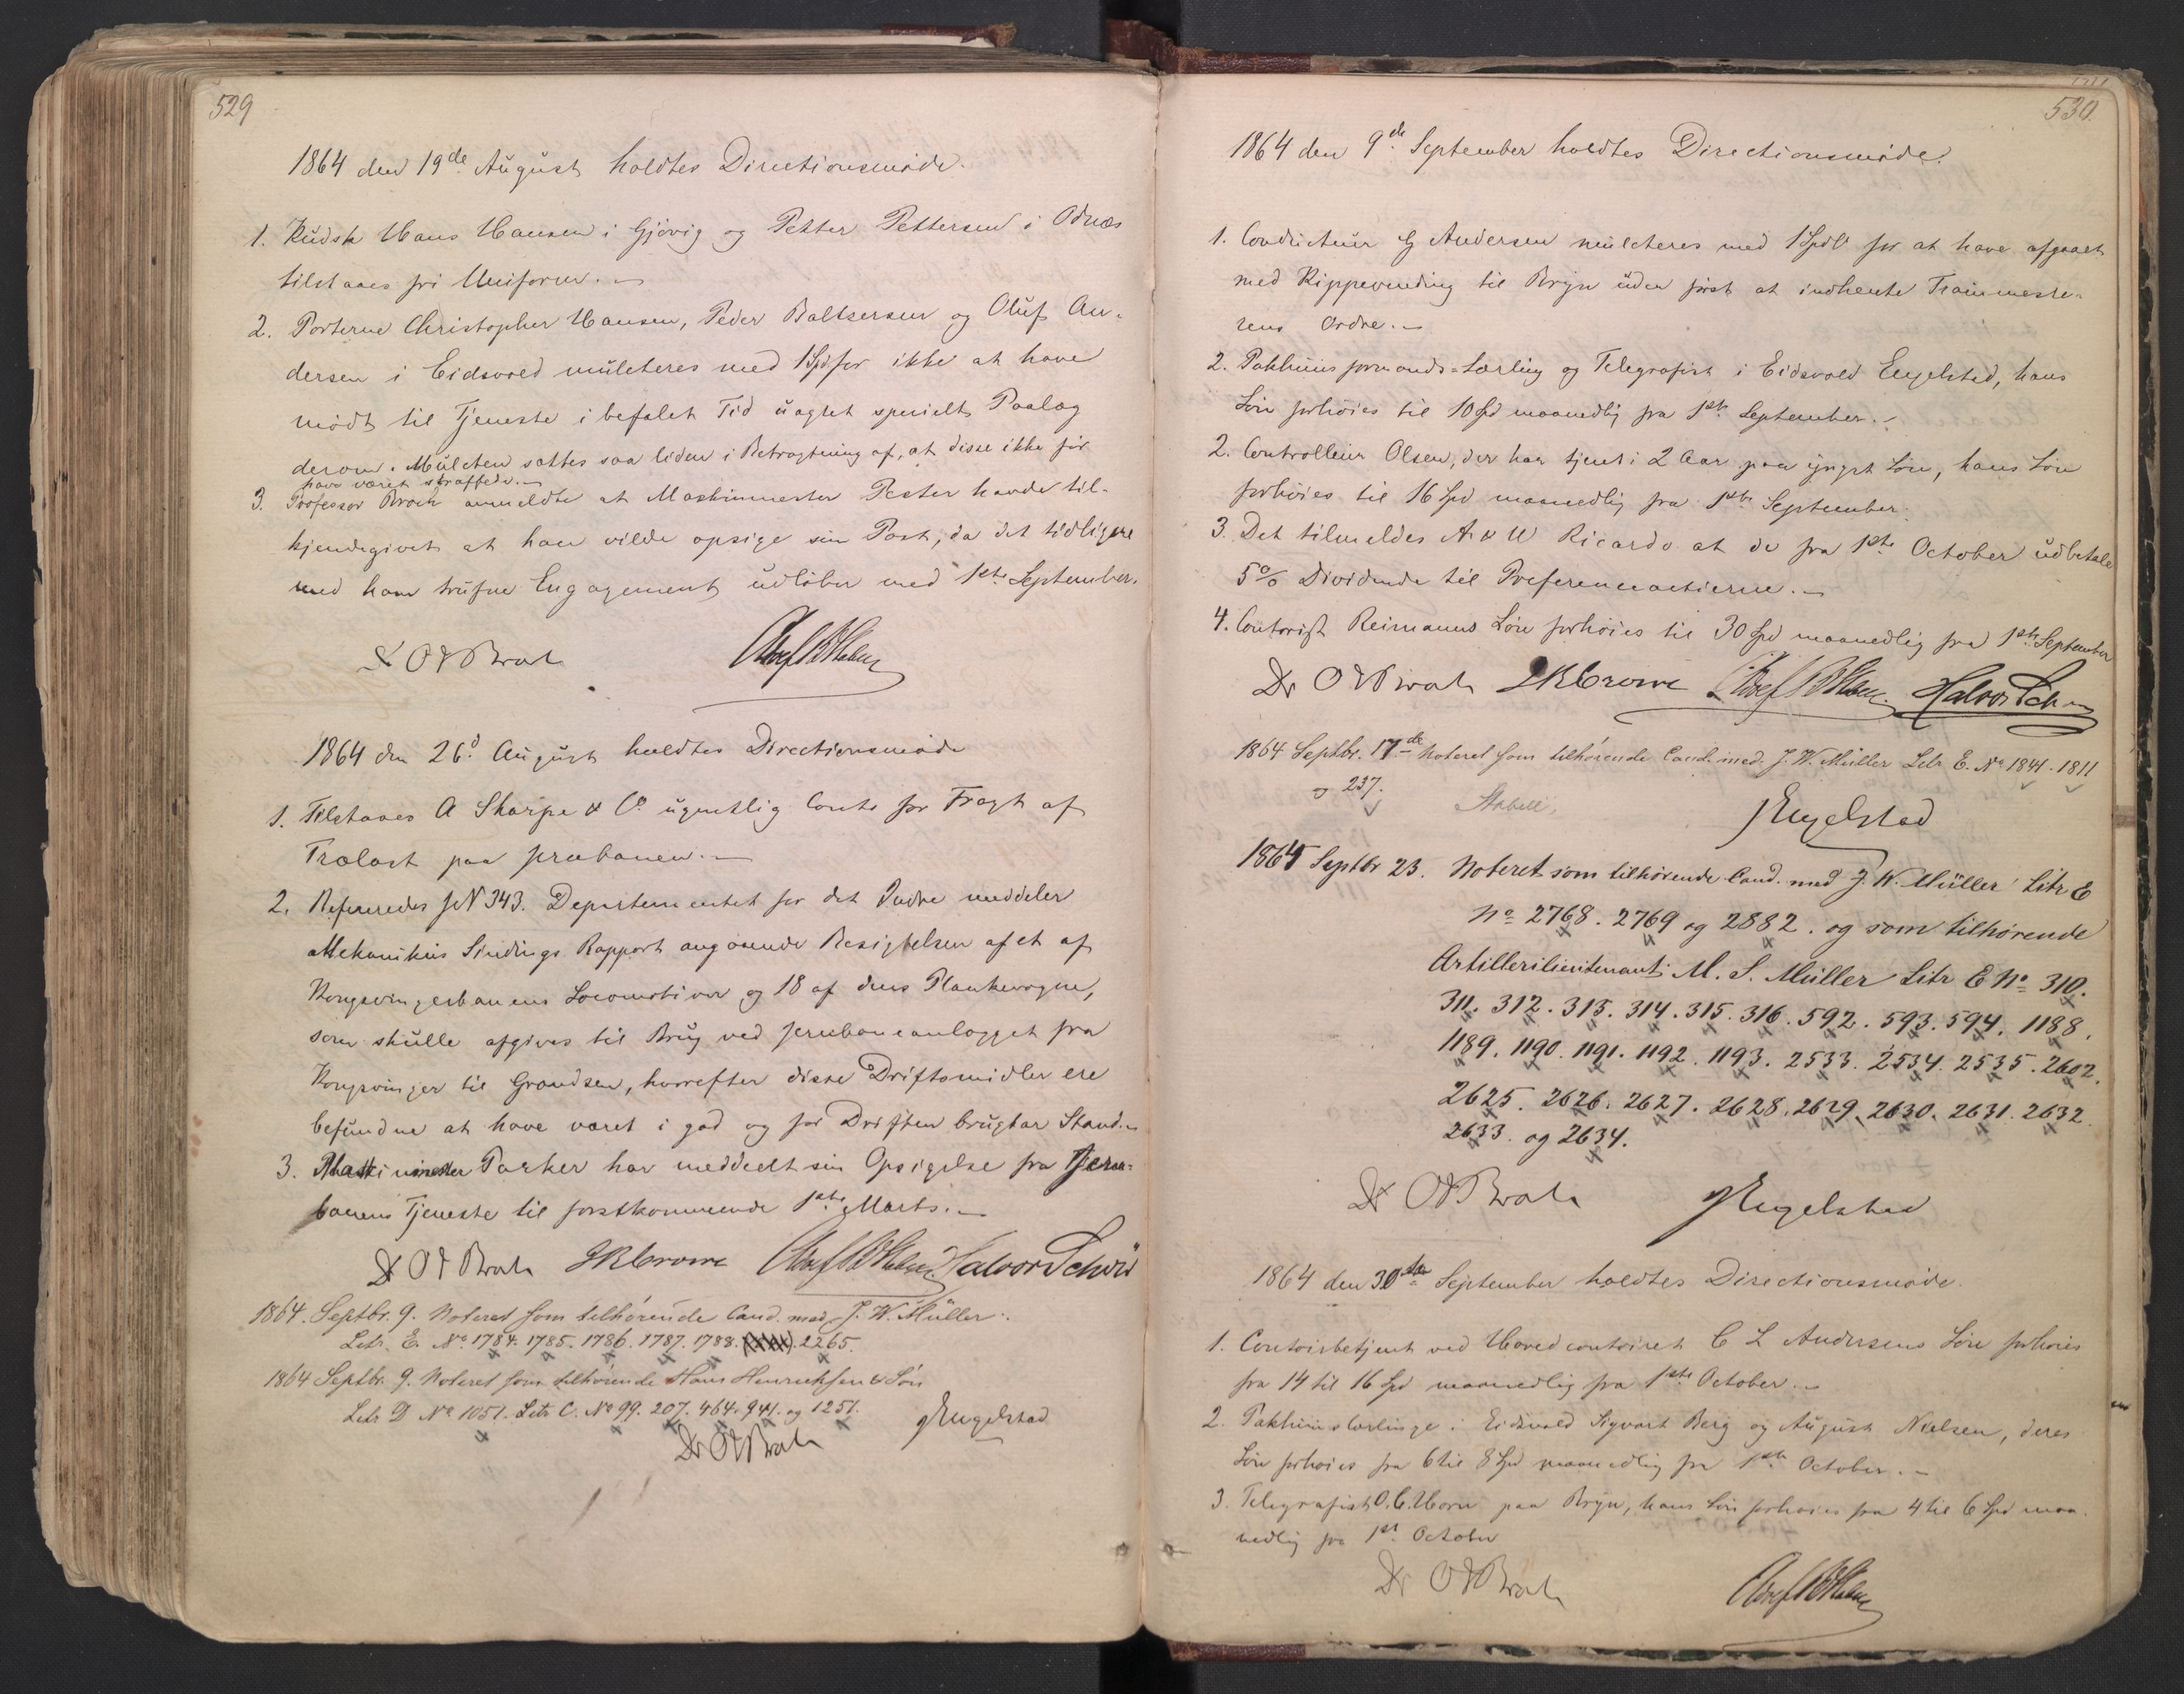 529
1864 den 19de August holdtes Directionsmøde.
1. Kudsk Hans Hansen i Gjøvig og Petter Pettersen i Odnæs
tilstaaes fri Uniform.
2. Porterne Christopher Hansen, Peder Baltsersen og Oluf An-
dersen i Eidsvold mulcteres med 1 Spd for ikke at have
mødt til Tjeneste i befalet Tid uagtet specielt Paalæg
derom. Mulcten sattes saa liden i Betragtning af, at disse ikke før
have været straffede.
3. Professor Broch anmeldte at Maskinmester Pester havde til-
kjendegivet at han vilde opsige sin Post, da det tidligere
med ham trufne Engagement udløber med 1ste September.
Dr O J Broch
1864 den 26d August holdtes Directionsmøde
1. Tilstaaes A Sharpe & Co ugentlig Conto for Fragt af
Trælast paa Jernbanen.
2. Refereredes JN 343. Departementet for det Indre meddeler
Mekanikus Sindings Rapport angaaende Besigtelsen af et af
Kongsvingerbanens Locomotiver og 18 af dens Plankevogne,
som skulle afgives til Brug ved Jernbaneanlægget fra
Kongsvinger til Grændsen, hvorefter disse Driftsmidler ere
befundne at have været i god og for Driften brugbar Stand.
3. Maskinmester Parker har meddeelt sin Opsigelse fra Jern-
banens Tjeneste til førstkommende 1ste Marts.
Dr O J Broch JRCrowe Halvor Schou
1864. Septbr. 9. Noteret som tilhørende Cand. med. J. W. Müller.
Litr. E. No 1784. 1785. 1786. 1787. 1788. 2265.
1864 Septbr. 9. Noteret som tilhørende Hans Henricksen & Søn
Litr D No 1051. Litr C. No 99. 207. 464. 941. og 1251.
Engelstad
Dr O J Broch
530.
1864 den 9de September holdtes Directionsmøde.
1. Conducteur G Andersen mulcteres med 1 Spdlr for at have afgaaet
med Kippevending til Bryn uden først at indhente Trainmeste-
rens Ordre.
2. Pakhuusformands-Lærling og Telegrafist i Eidsvold Engelstad, hans
Løn forhøies til 10 Spd maanedlig fra 1ste September.
2. Controlleur Olsen, der har tjent i 2 Aar paa yngst Løn, hans Løn
forhøies til 16 Spd maanedlig fra 1ste September.
3. Det tilmeldes A & W Ricardo at de fra 1ste October udbetale
5% Dividende til Preferenceactierne.
4. Contorist Reimanns Løn forhøies til 30 Spd maanedlig fra 1ste September
Dr O J Broch JRCrowe Halvor Schou
1864 Septbr. 17de Noteret som tilhørende Cand. med. J. W. Müller Litr E. No 1841. 1811
og 237.
Stabell.
Engelstad
1864 Septbr 23. Noteret som tilhørende Cand. med J. W. Müller Litr E
No 2768. 2769 og 2882. og som tilhørende
Artillerilieutenant M. S. Müller Litr E No 310.
311. 312. 313. 314. 315. 316. 592. 593. 594. 1188.
1189. 1190. 1191. 1192. 1193. 2533. 2534. 2535. 2602.
2625. 2626. 2627. 2628. 2629. 2630. 2631. 2632
2633. og 2634.
Dr O J Broch Engelstad
1864 den 30te September holdtes Directionsmøde.
1. Contoirbetjent ved Hovedcontoiret C L Andersens Løn forhøies
fra 14 til 16 Spd maanedlig fra 1ste October.
2. Pakhuuslærlinge i Eidsvold Sigvart Berg og August Nielsen, deres
Løn forhøies fra 6 til 8 Spd maanedlig fra 1ste October.
3. Telegrafist O. C. Horn paa Bryn, hans Løn forhøies fra 4 til 6 Spd maa-
nedlig fra 1st October
Dr O J Broch